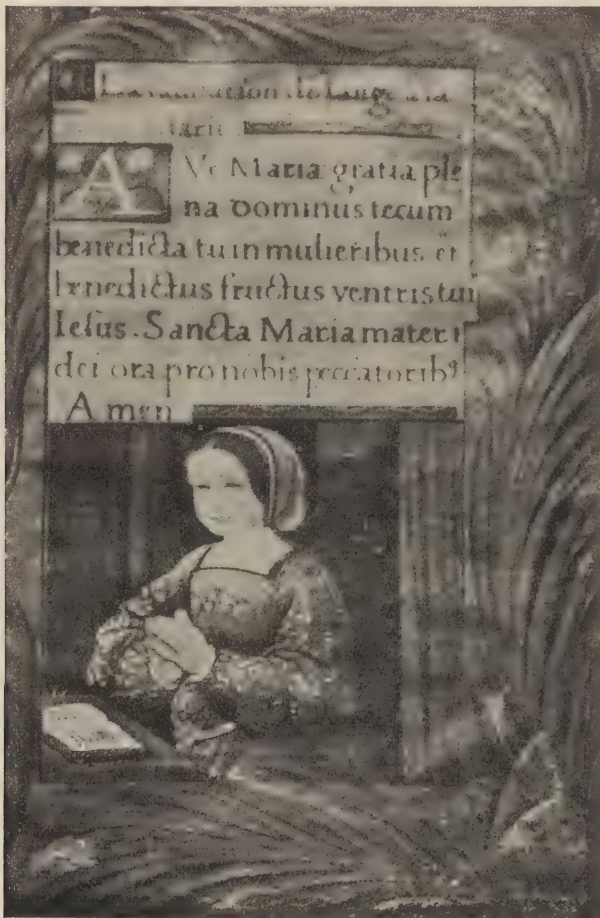 de lange
AVe Maria gratia ple
na dominus tecum
benedicta tu in mulieribus et
benedictus fructus ventris tui
Iesus. Sancta Maria mater
dei ora pro nobis peccatorib⁹
Amen